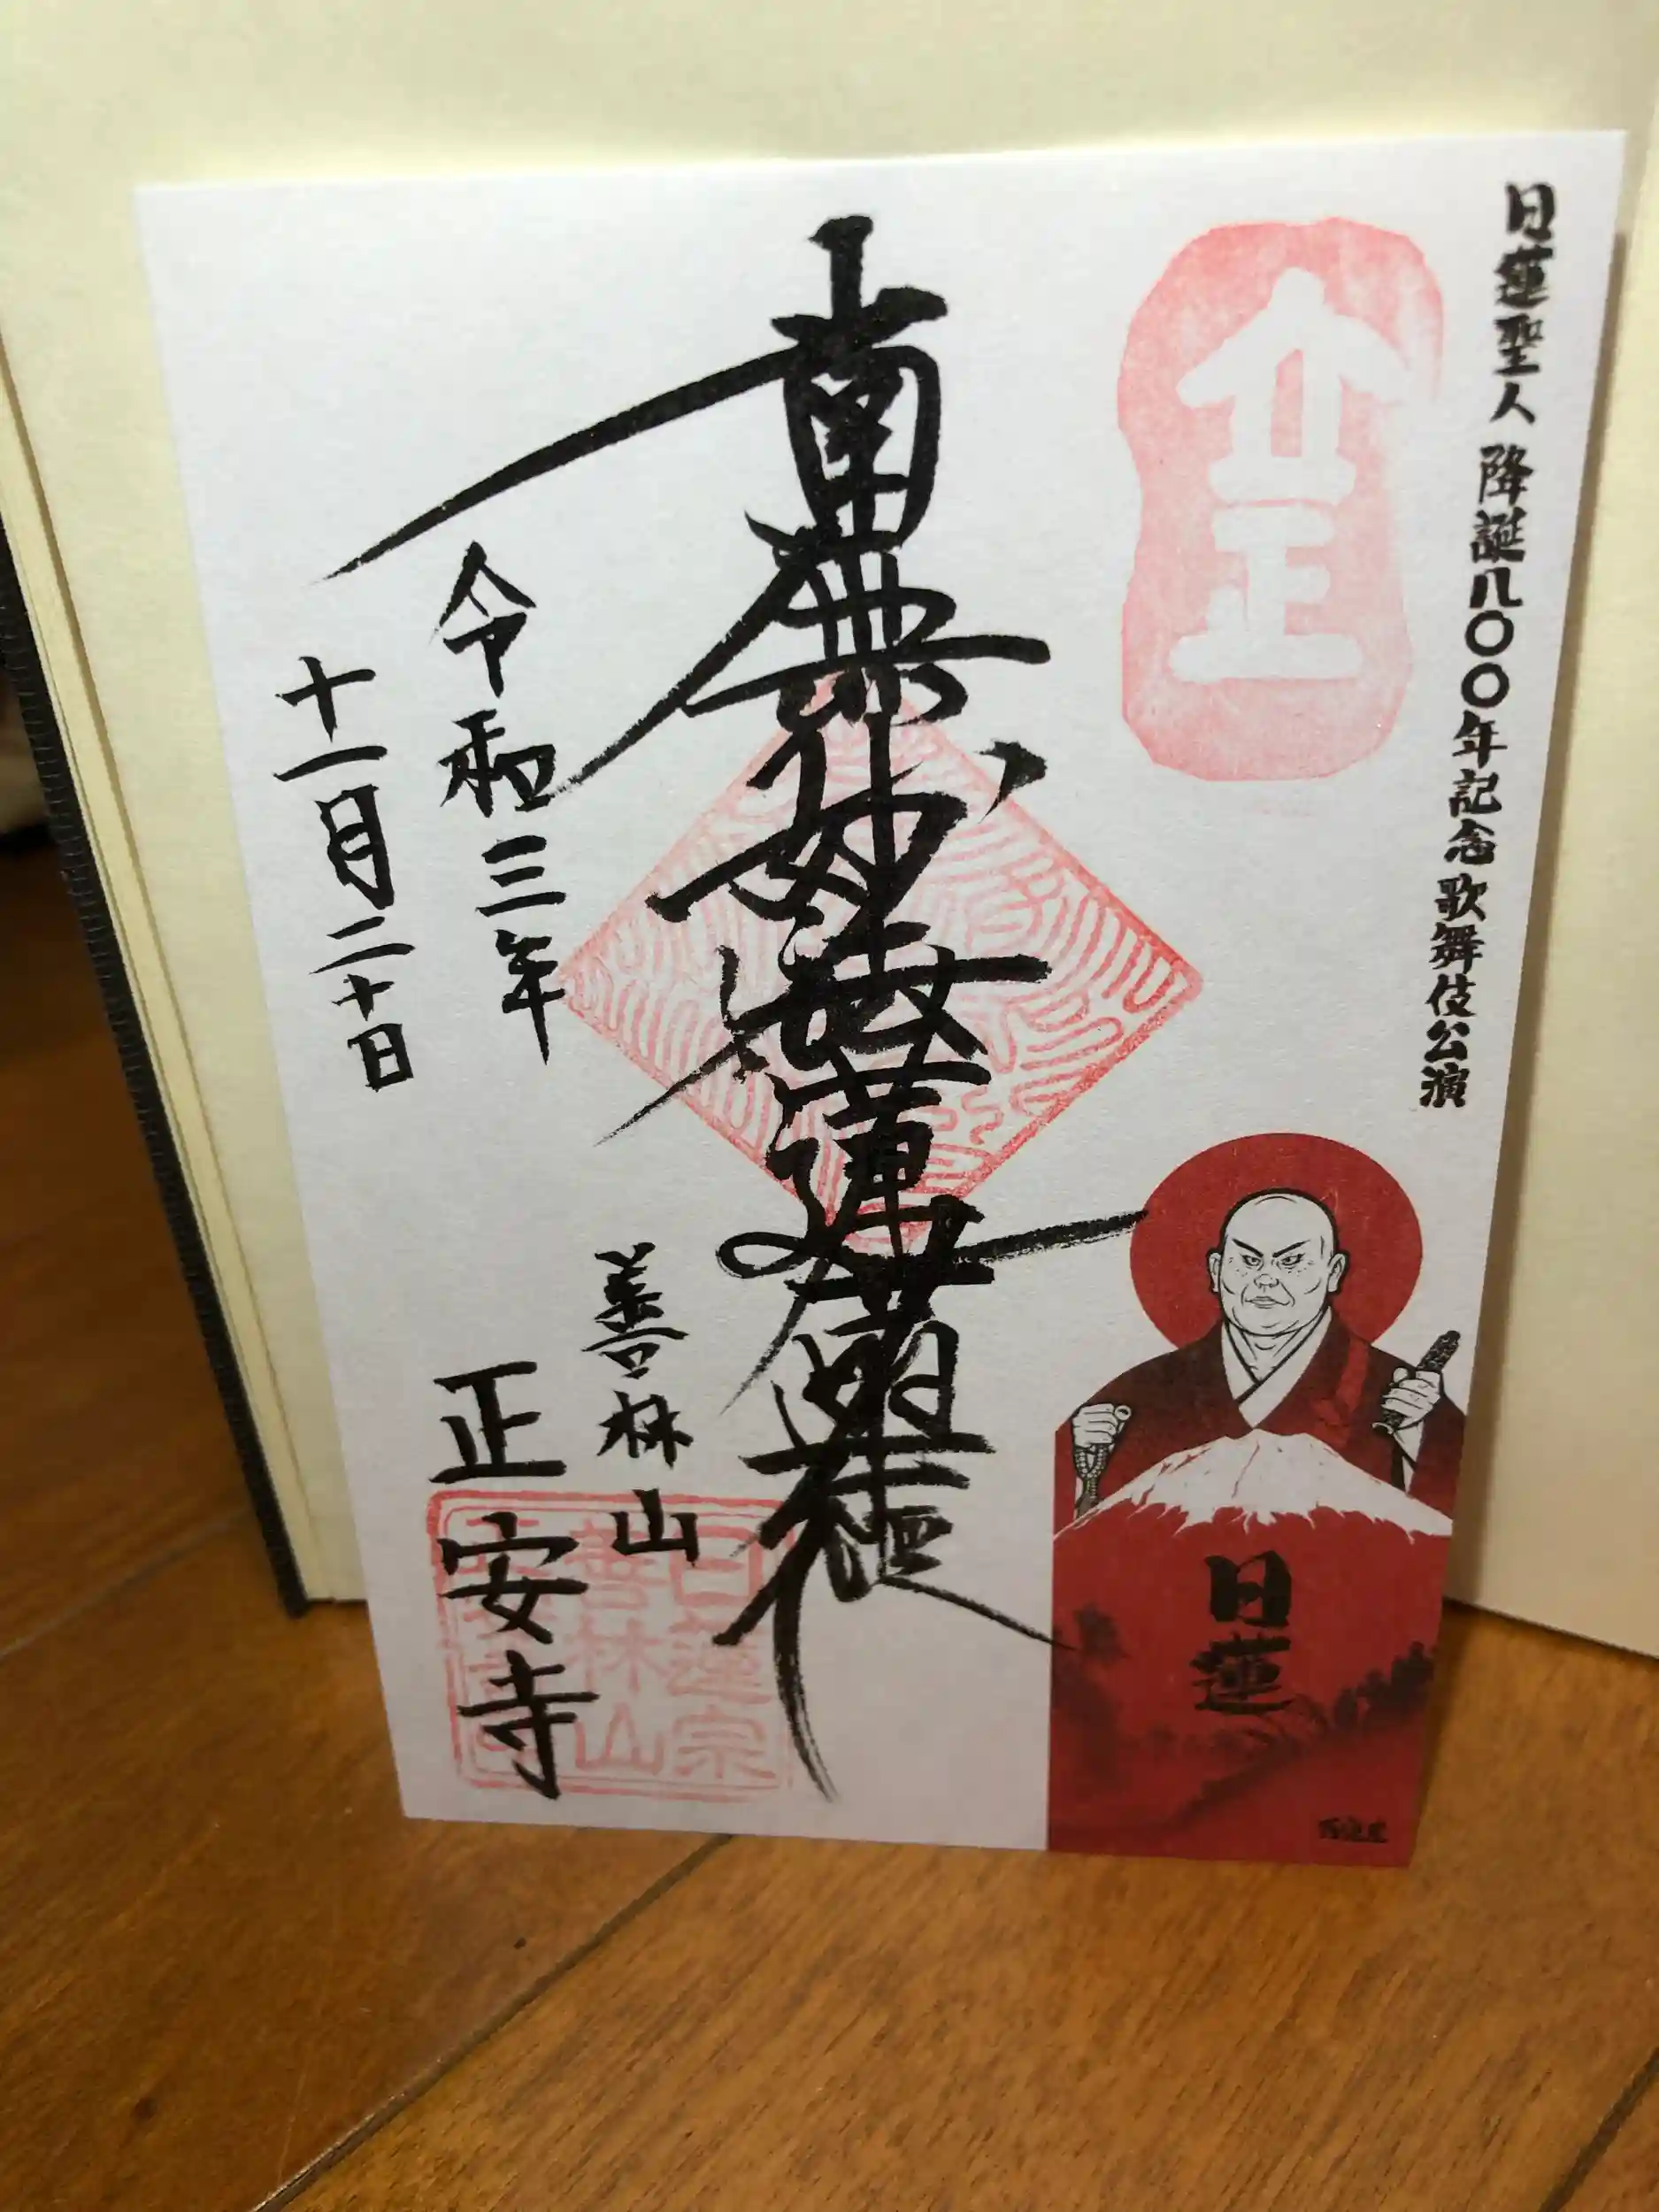 日蓮聖人 降誕八〇〇年記念 歌舞伎公演
日蓮
南無妙法蓮華経
善林山
正安寺
令和三年
十一月二十日
日蓮宗
善林山
正安寺